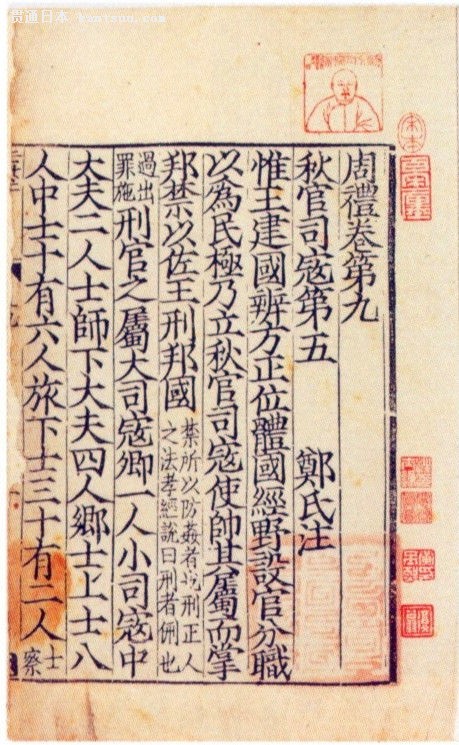 贯通日本 kantsuu.com
周禮卷第九
秋官司寇第五 鄭氏注
惟王建國辨方正位體國經野設官分職
以為民極乃立秋官司寇使帥其屬而掌
邦禁以佐王刑邦國 禁所以防姦者也刑正人
之法孝經說曰刑者侀也
過出
罪施 刑官之屬大司寇卿一人小司寇中
大夫二人士師下大夫四人鄉士上士八
人中士十有六人旅下士三十有二人 士
察
宋本